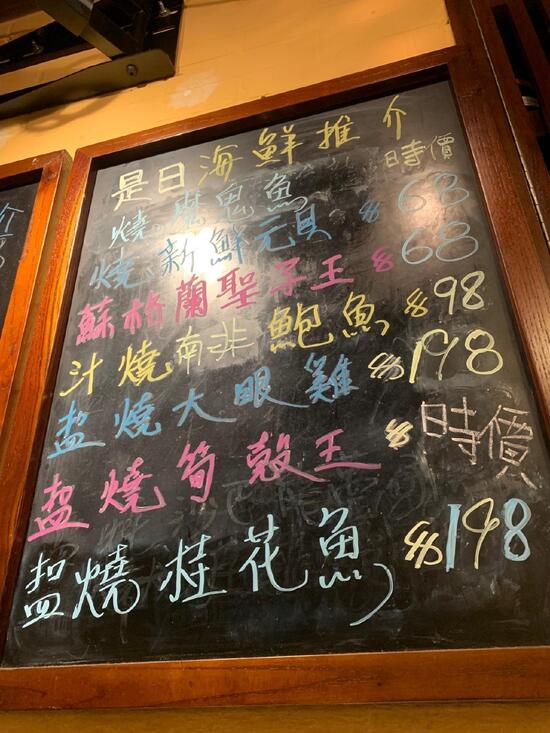 是日海鮮推介
燒魔鬼魚 時價
燒新鮮元貝 $68
蘇格蘭聖子王 $68
汁燒南非鮑魚 $98
盐燒大眼雞 $198
盐燒筍殼王 $時價
盐燒桂花魚 $198